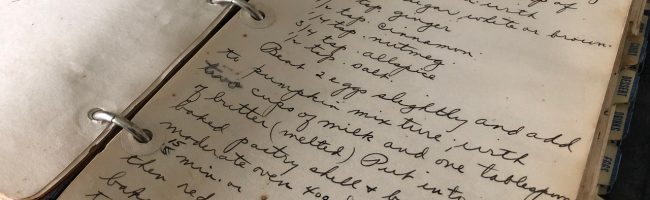 cup of
sugar white or brown.
with
tsp ginger
tsp. cinnamon.
1/4 tsp. nutmeg.
3/4 tsp. allspice
1/2 tsp. salt.
Beat 2 eggs slightly and add
to pumpkin mixture, with
two cups of milk and one tablespoon
of butter (melted) Put into
baked pastry shell &
moderate oven 400
15 min. or
then red
bak
DESSERT
DRINKS